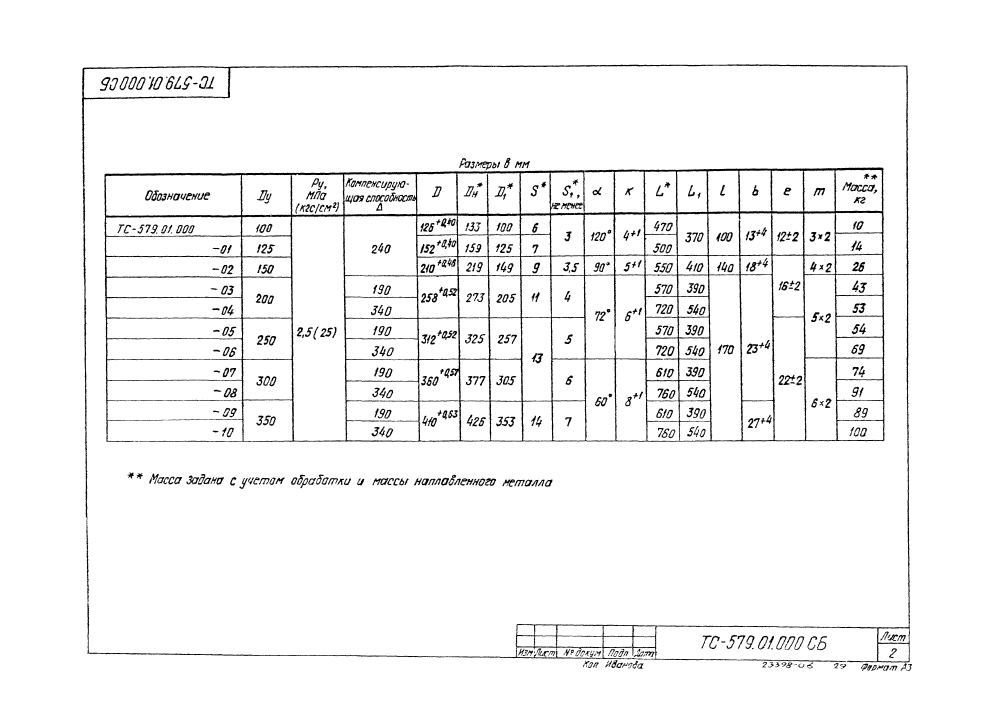 ТС-579.01.000СБ
Размеры в мм
Обозначение Dу Ру, МПа (кгс/см²) Компенсирую-щая способность Δ D Dн* D1* S* S1*, не менее α к L* L1 l b e m ** Масса, кг
ТС-579.01.000 100 2,5(25) 240 126+0,40 133 100 6 3 120° 4+1 470 370 100 13+4 12±2 3×2 10
-01 125 152+0,40 159 125 7 500 14
-02 150 210+0,46 219 149 9 3,5 90° 5+1 550 410 140 18+4 16±2 4×2 26
-03 200 190 258+0,52 273 205 11 4 72° 6+1 570 390 170 23+4 5×2 43
-04 340 720 540 53
-05 250 190 312+0,52 325 257 13 5 570 390 22±2 54
-06 340 720 540 69
-07 300 190 360+0,57 377 305 6 60° 8+1 610 390 6×2 74
-08 340 760 540 91
-09 350 190 410+0,63 426 353 14 7 610 390 27+4 89
-10 340 760 540 100
** Масса задана с учетом обработки и массы наплавленного металла
ТС-579.01.000 СБ
Лист
2
Изм Лист № докум Подп Дата
Коп Иванова 23398-06 29 Формат А3